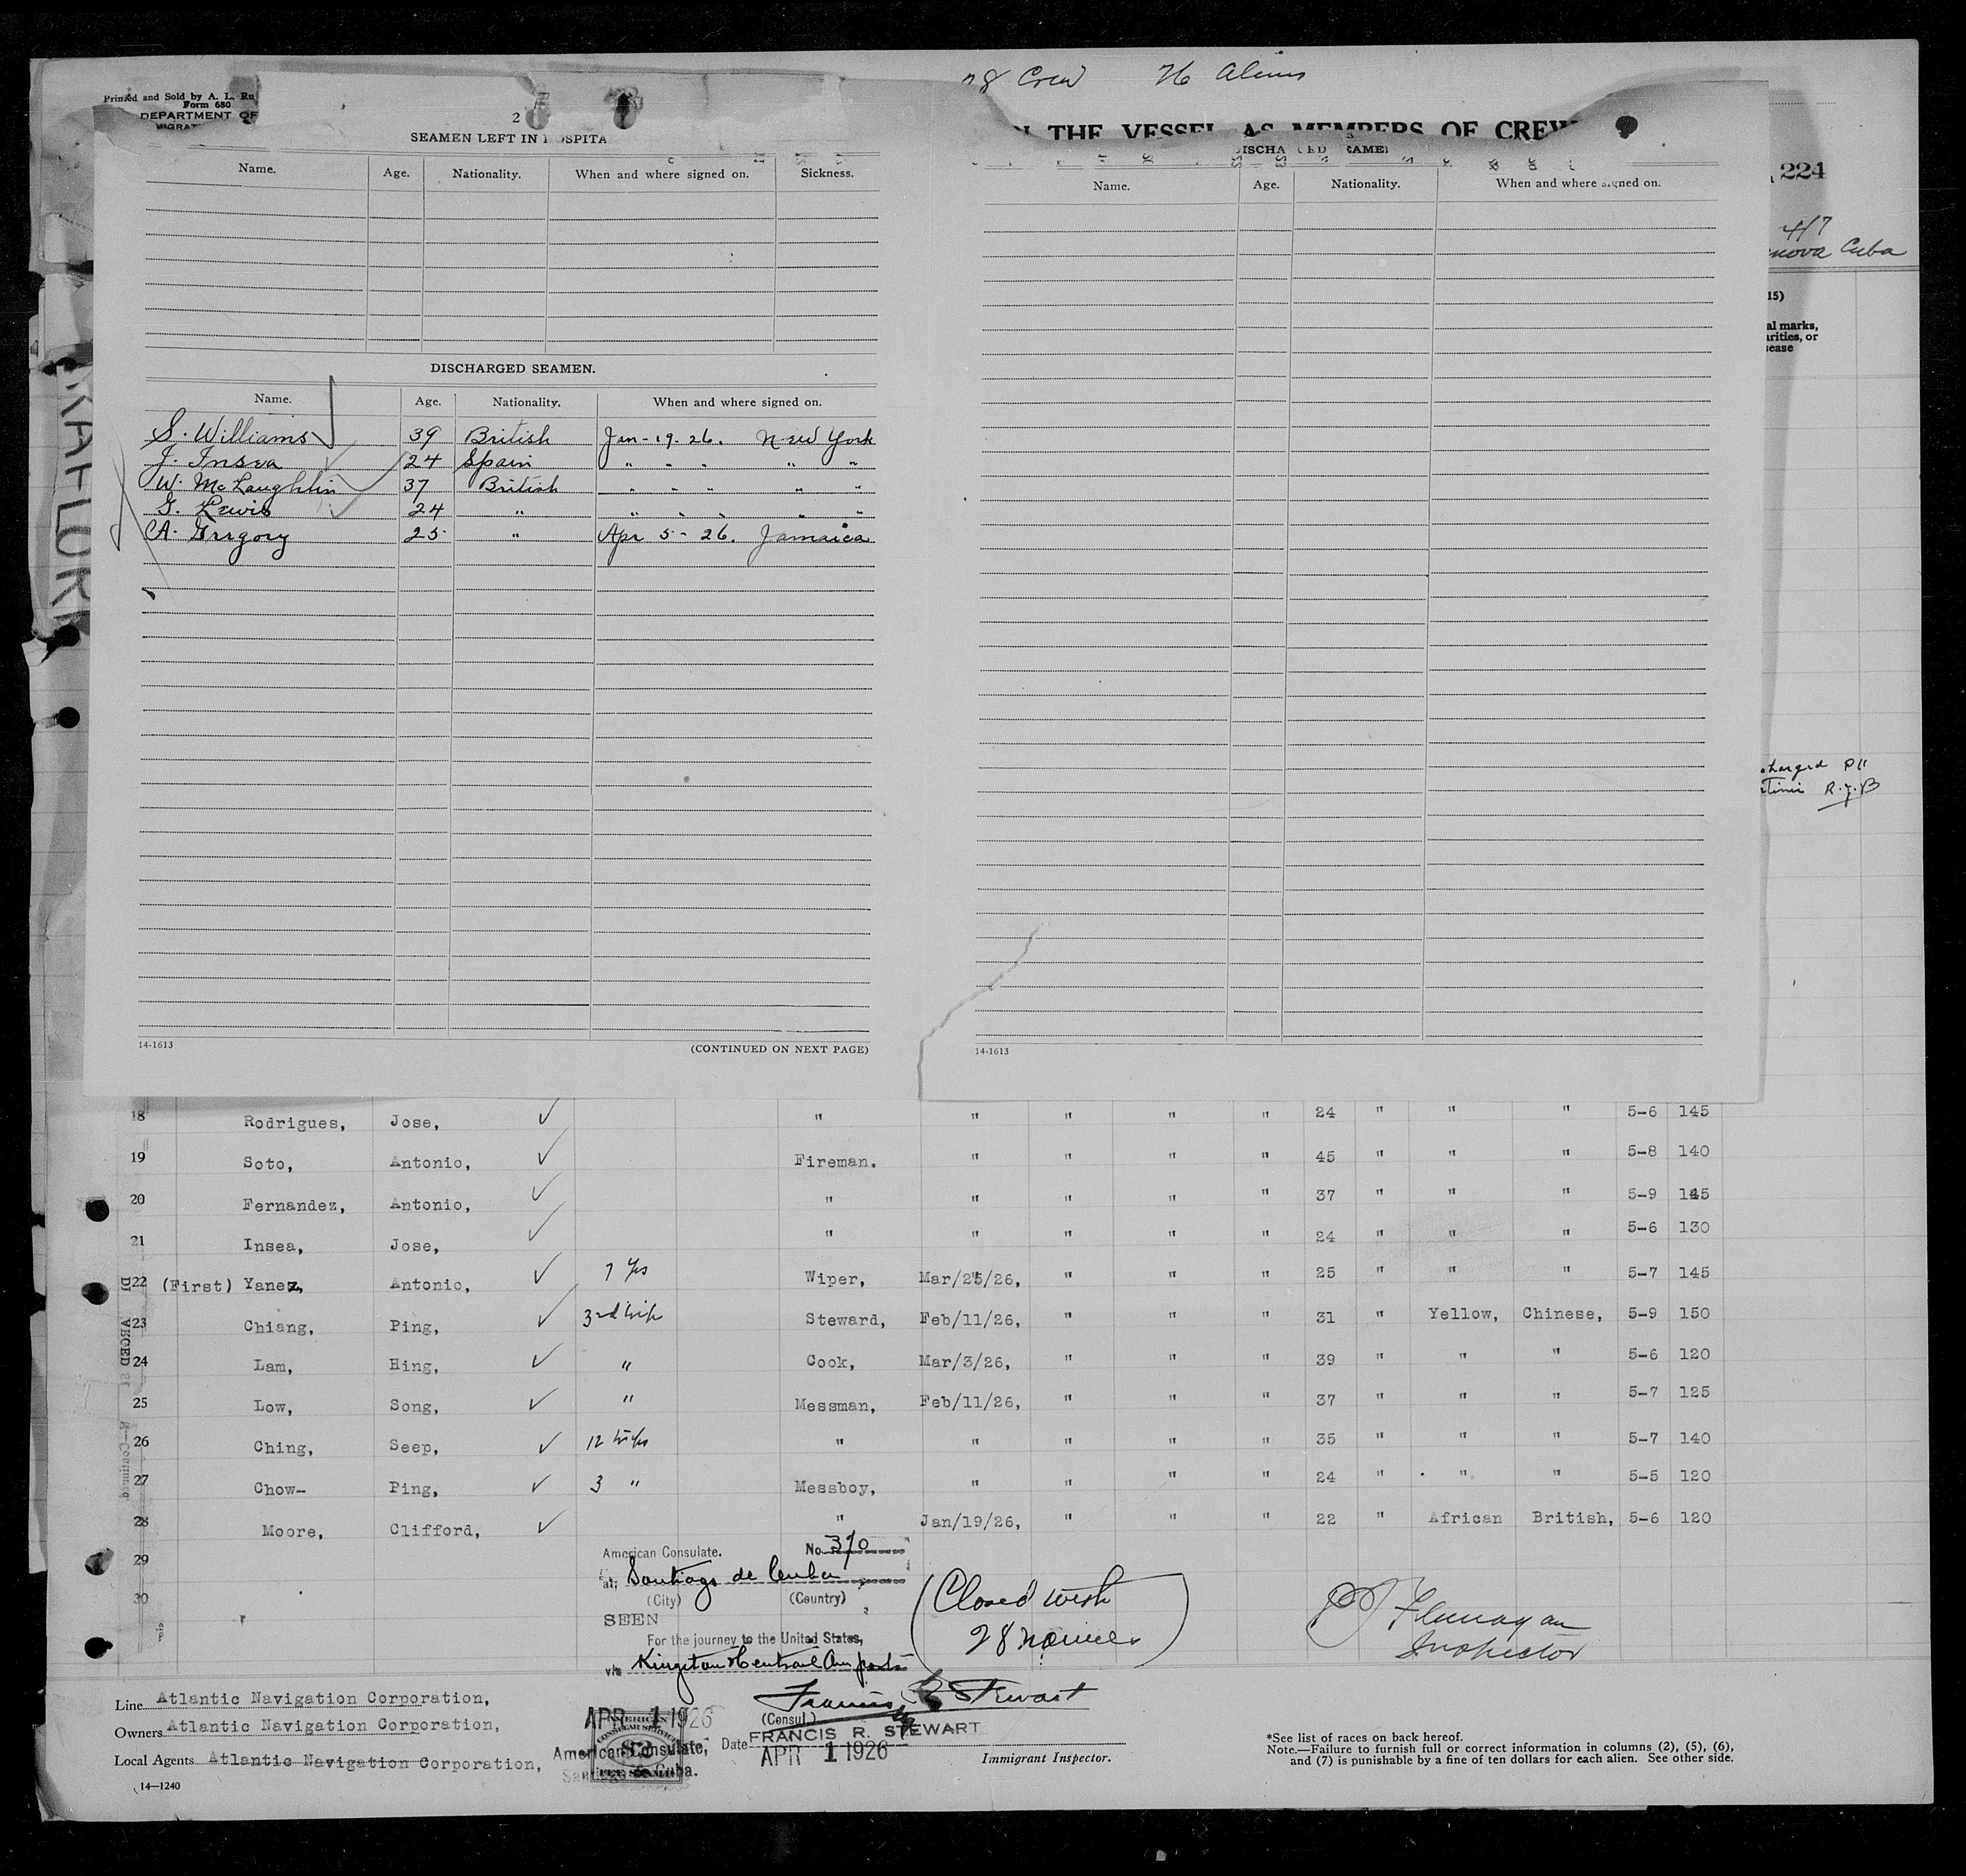 78 Crew 26 Aliens
Printed and Sold by A. L. Ru
Form 680
DEPARTMENT OF
MIGRAT
2
SEAMEN LEFT IN HOSPITA
Name. Age. Nationality. When and where signed on. Sickness.
DISCHARGED SEAMEN.
Name. Age. Nationality. When and where signed on.
S. Williams 39 British Jan-19-26. New York
J. Insua 24 Spain " " " " "
W. McLaughlin 37 British " " " " "
G. Lewis 24 " " " " " "
A. Gregory 25 " Apr 5-26. Jamaica
14-1613 (CONTINUED ON NEXT PAGE)
N THE VESSEL AS MEMBERS OF CREW
3
DISCHA ED EAMEN
Name. Age. Nationality. When and where signed on.
14-1613
224
4/7
nova Cuba
15)
al marks,
arities, or
sease
charged PH
R.J.B
RAFLOR
18 Rodrigues, Jose, " " " " " 24 " " " 5-6 145
19 Soto, Antonio, Fireman. " " " " 45 " " " 5-8 140
20 Fernandez, Antonio, " " " " " 37 " " " 5-9 145
21 Insea, Jose, " " " " " 24 " " " 5-6 130
22 (First) Yanez, Antonio, 7 yrs Wiper, Mar/25/26, " " " 25 " " " 5-7 145
23 Chiang, Ping, 3rd trip Steward, Feb/11/26, " " " 31 " Yellow, Chinese, 5-9 150
24 Lam, Hing, " Cook, Mar/3/26, " " " 39 " " " 5-6 120
25 Low, Song, " Messman, Feb/11/26, " " " 37 " " " 5-7 125
26 Ching, Seep, 12 trips " " " " " 35 " " " 5-7 140
27 Chow- Ping, 3 " Messboy, " " " " 24 " " " 5-5 120
28 Moore, Clifford, " Jan/19/26, " " " 22 " African British, 5-6 120
29
30
American Consulate. No. 370
at; Santiago de Cuba
(City) (Country)
SEEN
For the journey to the United States,
via Kingston & Central Am ports
(Closed with
28 names)
Flannagan
Inspector
Francis R Stewart
(Consul.)
FRANCIS R. STEWART
Date APR 1 1926
APR 1 1926
AMERICAN
CONSULAR SERVICE
$2
FEE STAMP
American Consulate,
Santiago de Cuba.
Line Atlantic Navigation Corporation,
Owners Atlantic Navigation Corporation,
Local Agents Atlantic Navigation Corporation,
14—1240
Immigrant Inspector.
*See list of races on back hereof.
Note.—Failure to furnish full or correct information in columns (2), (5), (6),
and (7) is punishable by a fine of ten dollars for each alien. See other side.